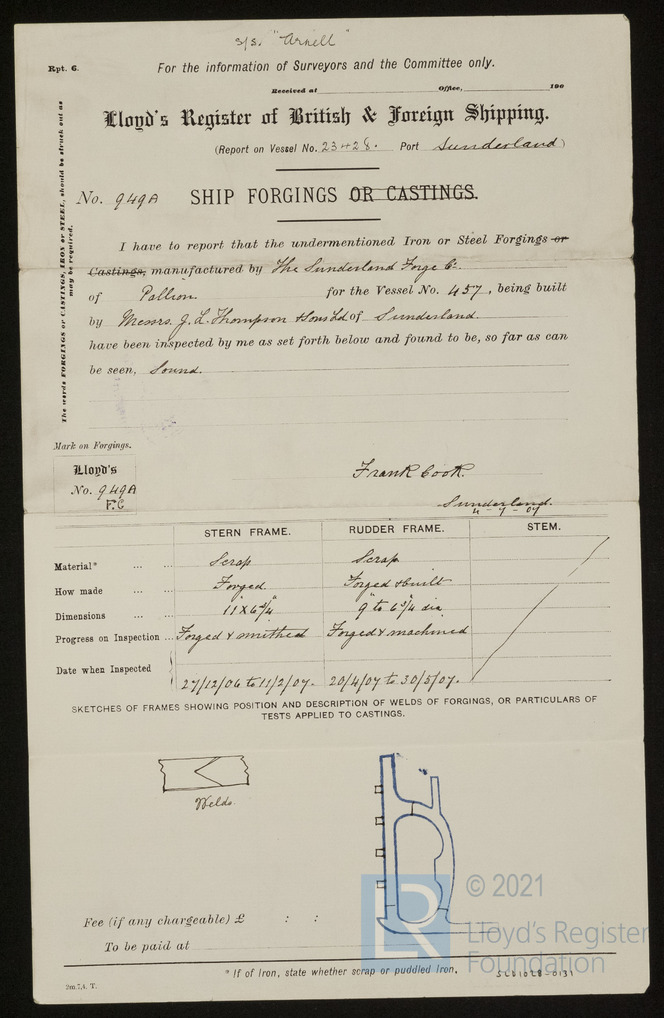 s/s. "Arnell"
Rpt. 6.
For the information of Surveyors and the Committee only.
Received at Office, 190
Lloyd's Register of British & Foreign Shipping.
(Report on Vessel No. 23428. Port Sunderland)
The words FORGINGS or CASTINGS, IRON or STEEL, should be struck out as
may be required.
No. 949A SHIP FORGINGS OR CASTINGS.
I have to report that the undermentioned Iron or Steel Forgings or
Castings, manufactured by The Sunderland Forge Co.
of Pallion. for the Vessel No. 457, being built
by Messrs. J. L. Thompson & Sons Ld of Sunderland.
have been inspected by me as set forth below and found to be, so far as can
be seen, Sound.
Mark on Forgings.
Lloyd's
No. 949A
F.C
Frank Cook.
Sunderland.
4-7-07
STERN FRAME. RUDDER FRAME. STEM.
Material* ... ... Scrap Scrap
How made ... ... Forged Forged & built
Dimensions ... ... 11 x 6¾" 9" to 6¾" dia
Progress on Inspection ... Forged & smithed Forged & machined
Date when Inspected 27/12/06 to 11/2/07. 20/4/07 to 30/5/07.
SKETCHES OF FRAMES SHOWING POSITION AND DESCRIPTION OF WELDS OF FORGINGS, OR PARTICULARS OF
TESTS APPLIED TO CASTINGS.
Welds.
Fee (if any chargeable) £ : :
To be paid at
* If of Iron, state whether scrap or puddled Iron.
2m.7,4. T.
SLD1028-0131
LR
© 2021
Lloyd's Register
Foundation